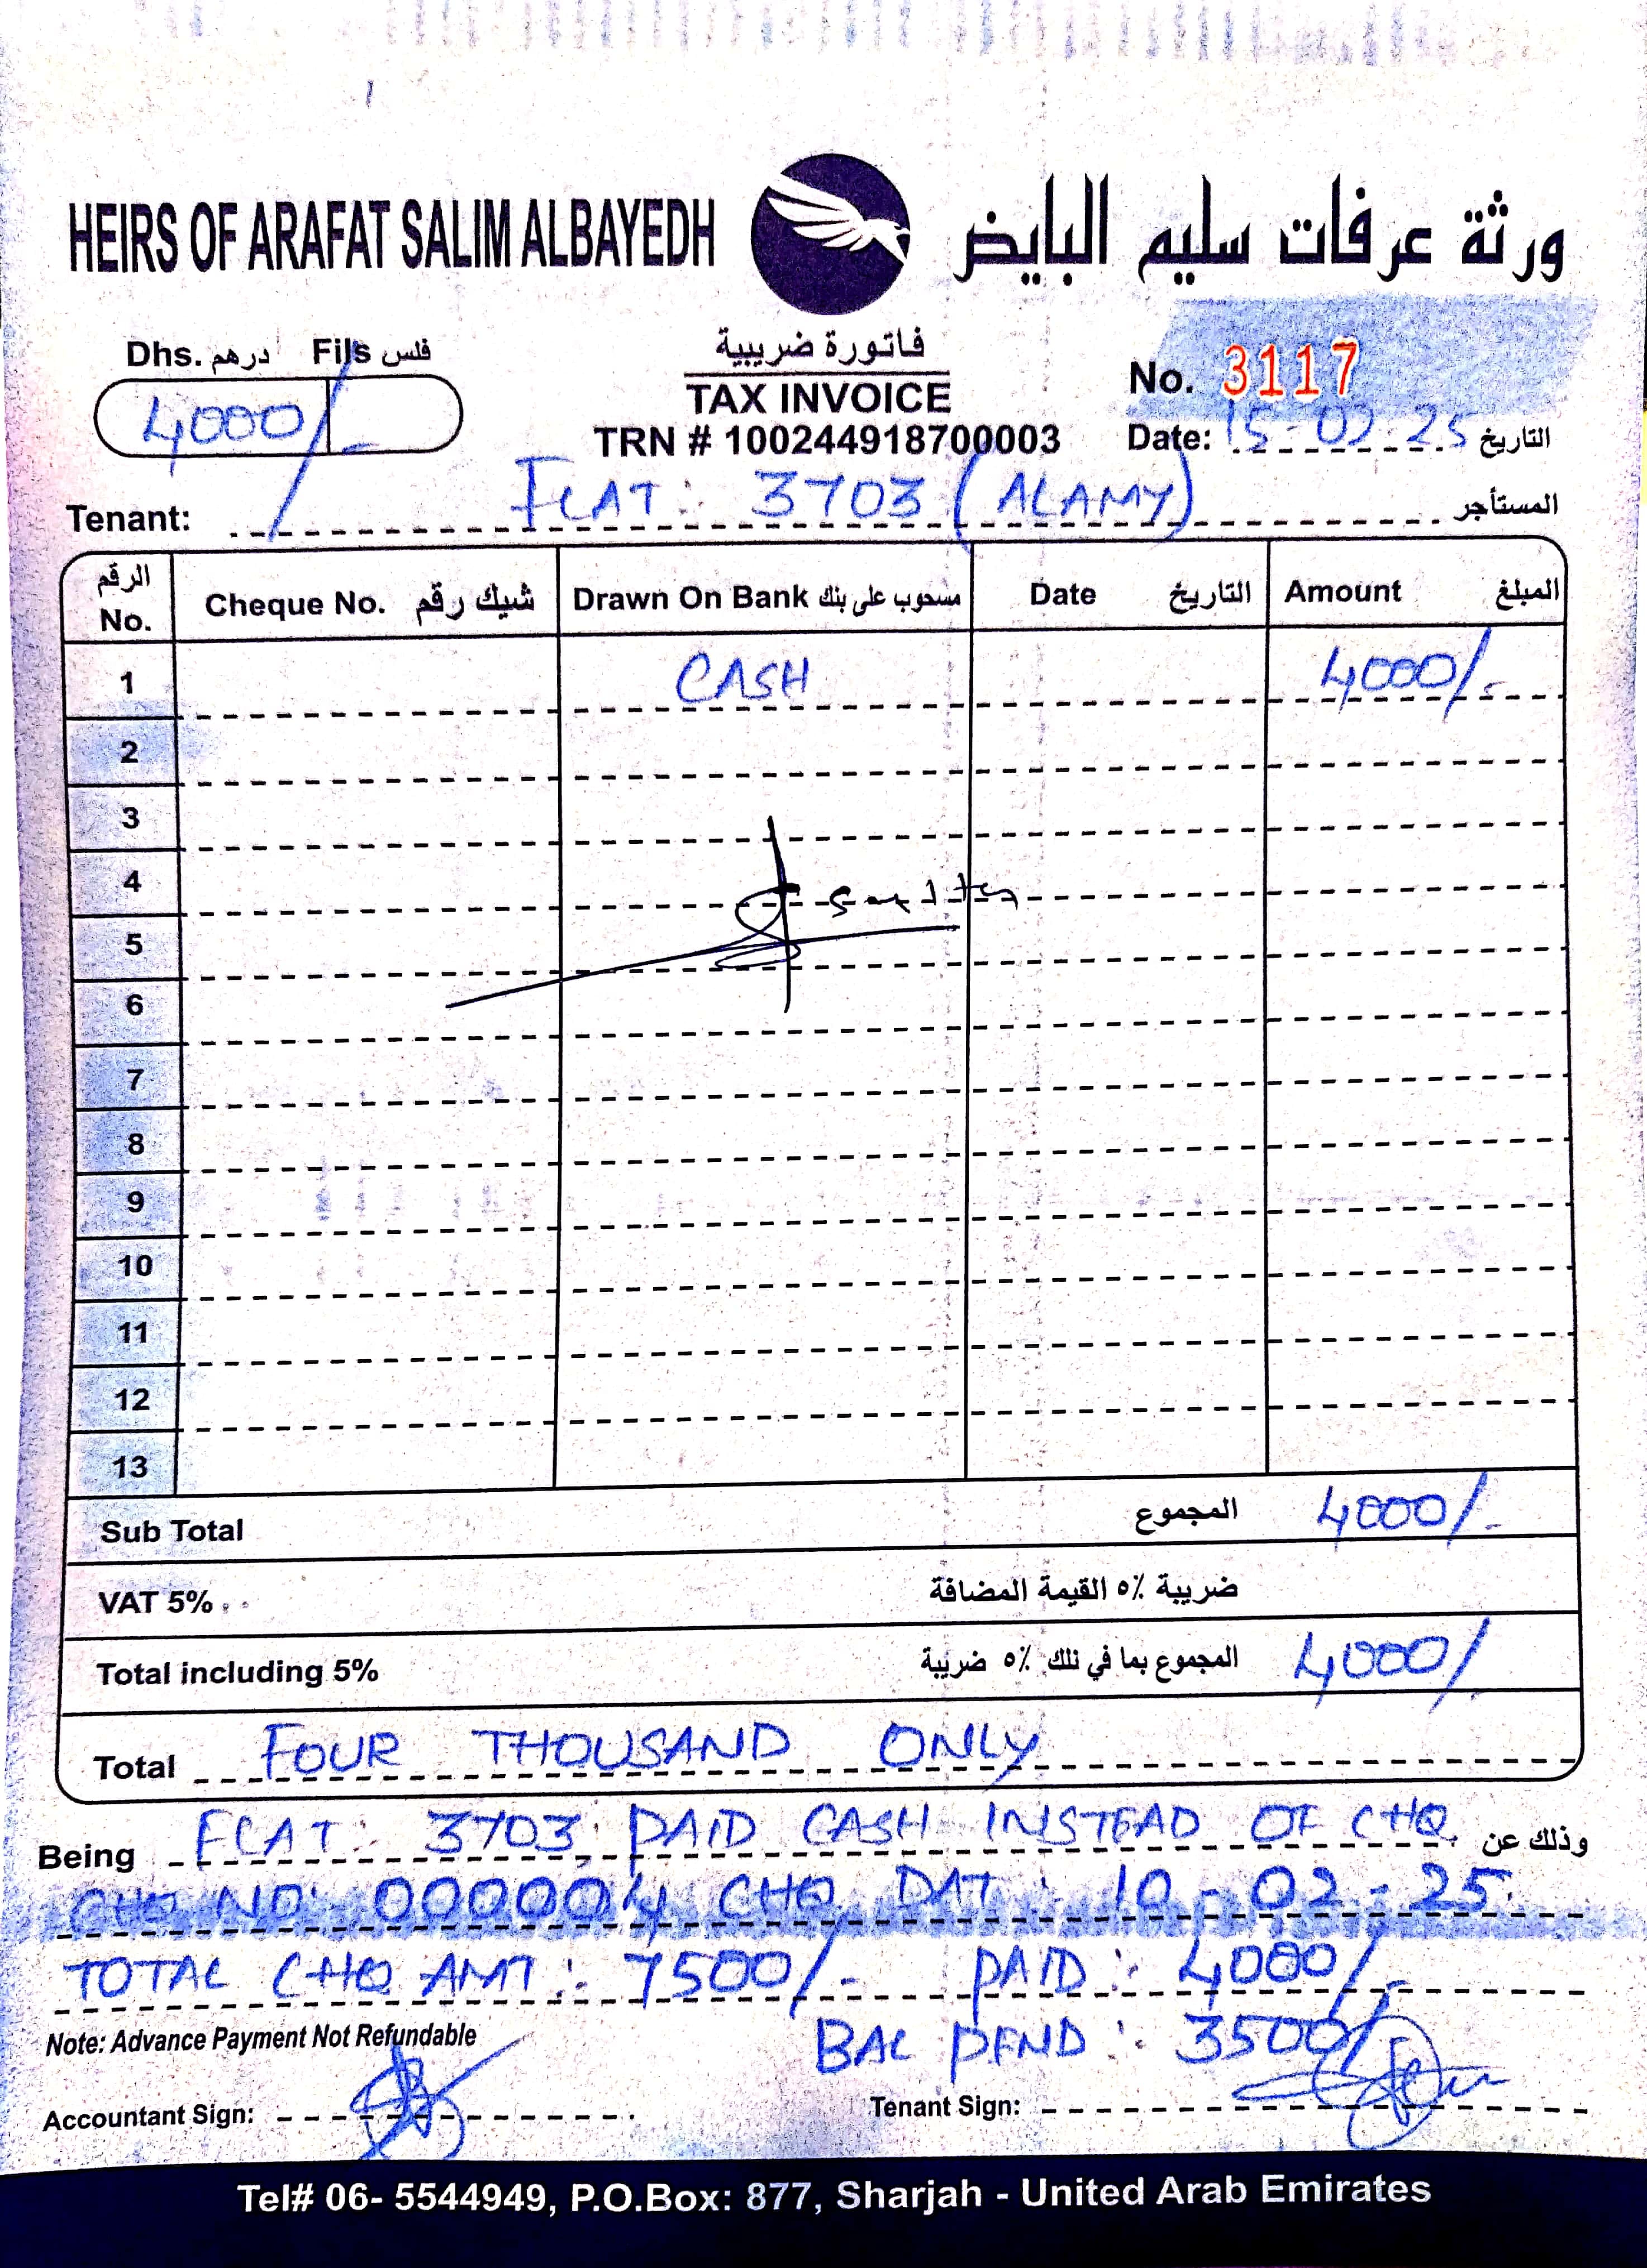 HEIRS OF ARAFAT SALIM ALBAYEDH ورثة عرفات سليم البايض
Dhs. درهم Fils فلس
4000/-
فاتورة ضريبية
TAX INVOICE
TRN # 100244918700003
No. 3117
Date: 15-02-25 التاريخ
Tenant: FLAT: 3703 (ALAMY) المستأجر
الرقم No. Cheque No. شيك رقم Drawn On Bank مسحوب على بنك Date التاريخ Amount المبلغ
1 CASH 4000/-
2
3
4
5
6
7
8
9
10
11
12
13
Sub Total المجموع 4000/-
VAT 5% ضريبة ٥٪ القيمة المضافة
Total including 5% المجموع بما في ذلك ٥٪ ضريبة 4000/-
Total FOUR THOUSAND ONLY
Being FLAT: 3703, PAID CASH INSTEAD OF CHQ. وذلك عن
CHQ NO: 000004 CHQ DAT: 10-02-25.
TOTAL CHQ AMT: 7500/- PAID: 4000/-
Note: Advance Payment Not Refundable BAL PEND: 3500/-
Accountant Sign: Tenant Sign:
Tel# 06- 5544949, P.O.Box: 877, Sharjah - United Arab Emirates